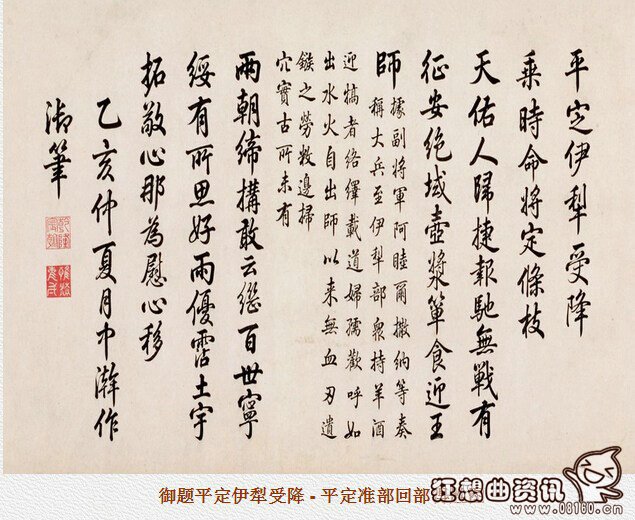 平定伊犁受降
乘時命將定條枝
天佑人歸捷報馳無戰有
征安絕域壺漿簞食迎王
師據副將軍阿睦爾撒納等奏
稱大兵至伊犁部衆持羊酒
迎犒者絡繹載道婦孺歡呼如
出水火自出師以来無血刃遺
鏃之勞敉邊掃
穴實古所未有
兩朝締構敢云繼百世寧
綏有所思好雨優霑土宇
拓敬心那為慰心移
乙亥仲夏月中澣作
御筆
御题平定伊犁受降 - 平定准部回部
狂想曲资讯
www.08160.cn